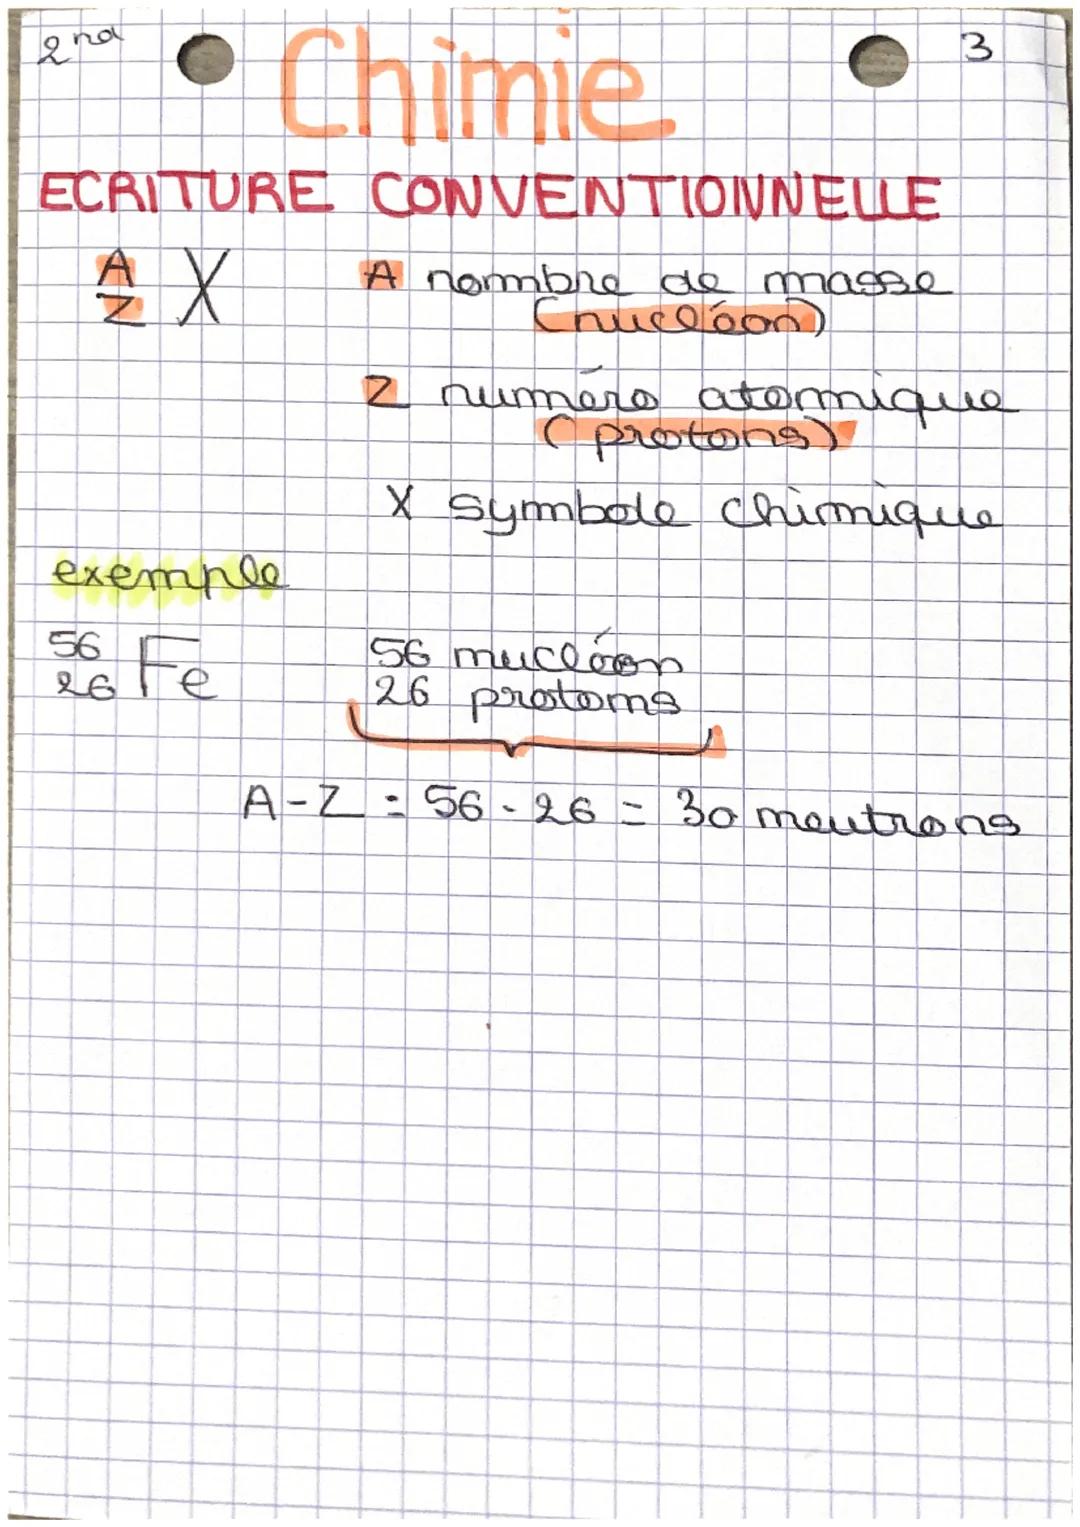 2nd
3
Chimie
ECRITURE CONVENTIONNELLE
A
Z X
A nombre de masse
(nucléon)
Z numéro atomique
(protons)
X symbole chimique
exemple
56
26 Fe
56 nucléon
26 protons
A-Z = 56 - 26 = 30 neutrons